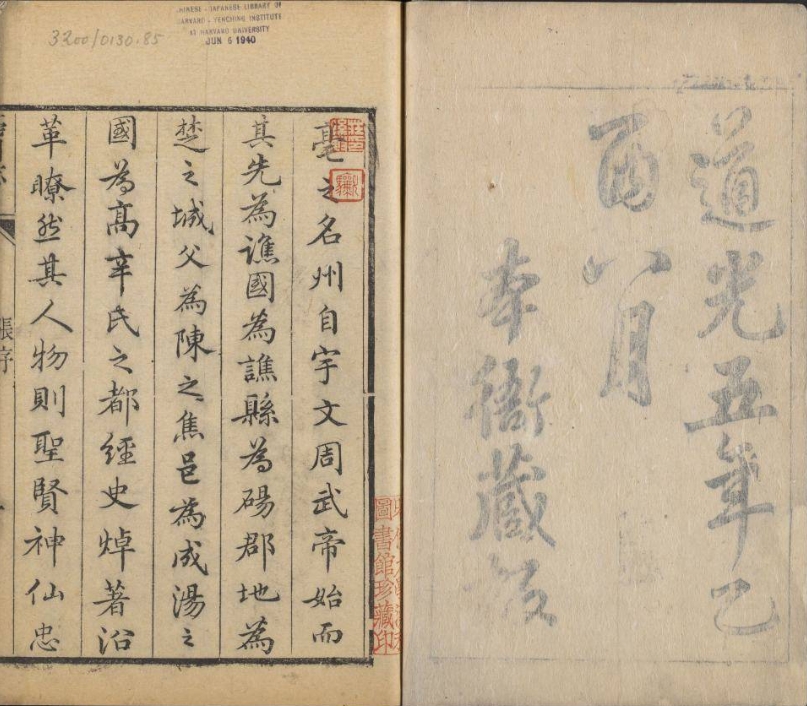 道光五年乙
酉八月
本衙藏板
3200/0130.85
CHINESE - JAPANESE LIBRARY OF
HARVARD - YENCHING INSTITUTE
AT HARVARD UNIVERSITY
JUN 6 1940
圖書館珍藏印
亳之名州自宇文周武帝始而
其先為譙國為譙縣為碭郡地為
楚之城父為陳之焦邑為成湯之
國為高辛氏之都經史焯著沿
革瞭然其人物則聖賢神仙忠
張序